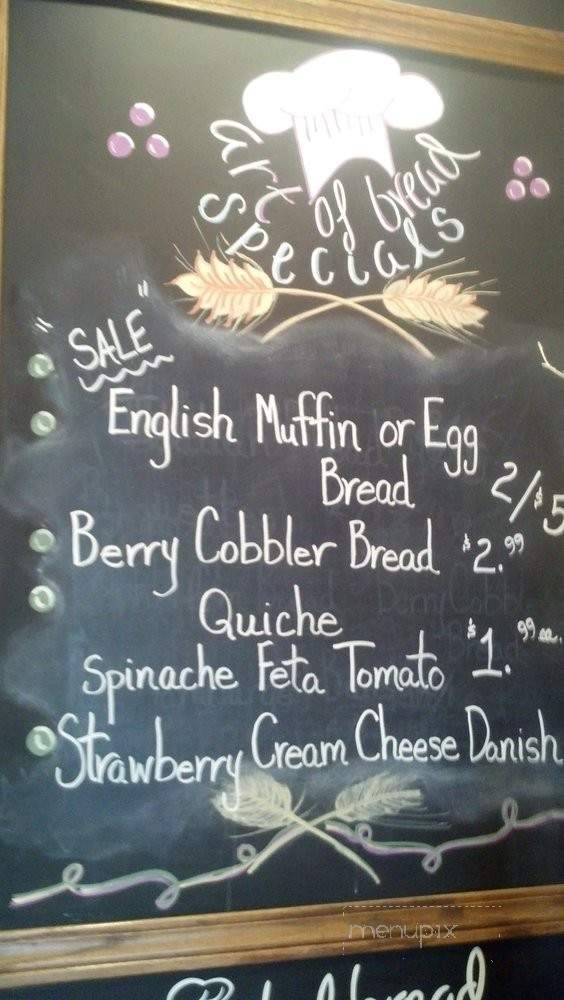 art of bread
specials
"SALE"
English Muffin or Egg
Bread 2/$5
Berry Cobbler Bread $2.99
Quiche
Spinache Feta Tomato $1.99 ea.
Strawberry Cream Cheese Danish
menupix